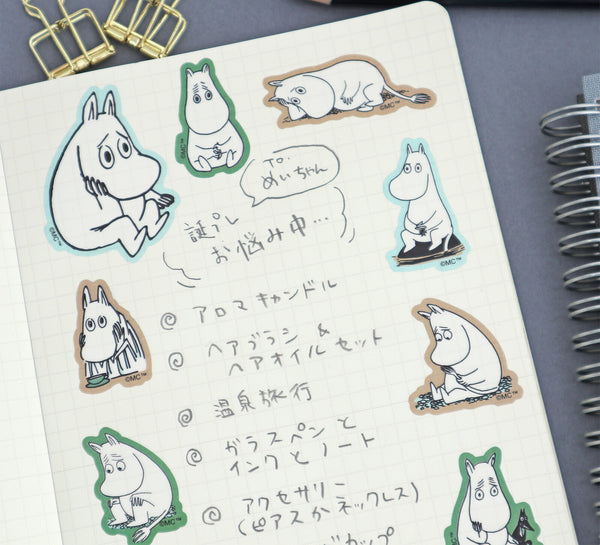 ©MC™
©MC™
©MC™
To.
めいちゃん
誕プレ
お悩み中…
©MC™
©MC™
アロマキャンドル
ヘアブラシ &
ヘアオイルセット
©MC™
温泉旅行
©MC™
ガラスペンと
インクとノート
アクセサリー
(ピアスかネックレス)
©MC™